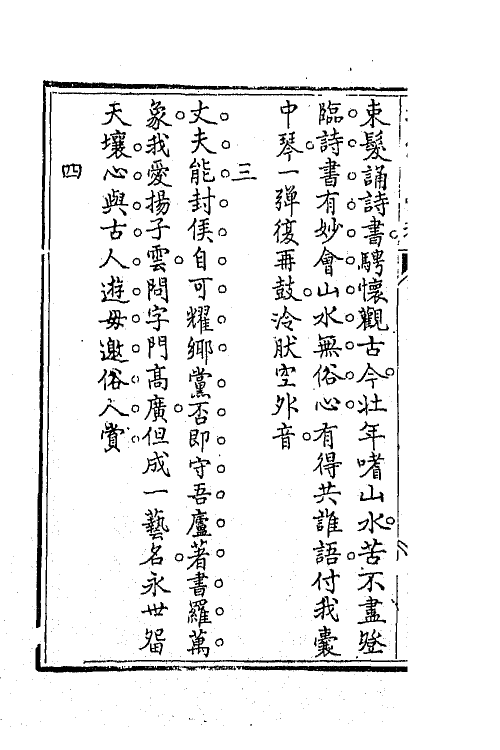 束髮誦詩書騁懷觀古今壯年嗜山水苦不盡登
臨詩書有妙會山水無俗心有得共誰語付我囊
中琴一彈復再鼓泠肰空外音
三
丈夫能封侯自可耀鄉黨否即守吾廬著書羅萬
象我愛揚子雲問字門高廣但成一藝名永世留
天壤心與古人遊毋邀俗人賞
四